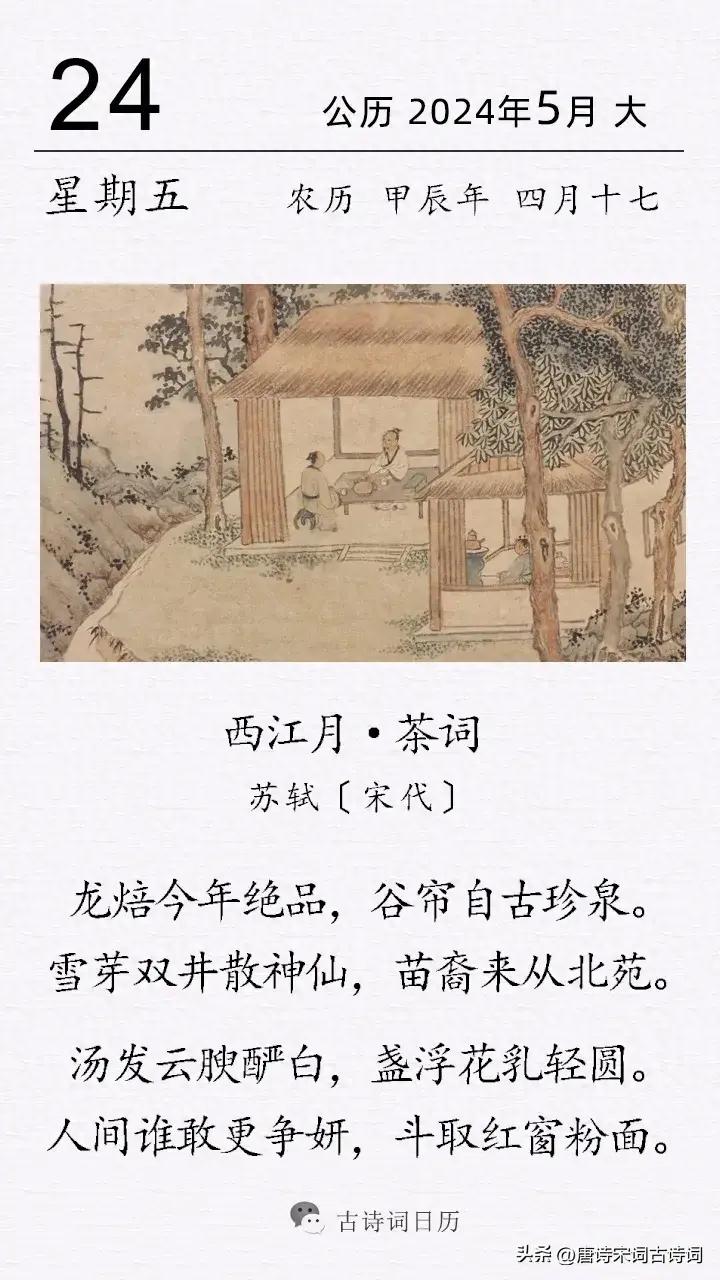 24
公历 2024年5月 大
星期五
农历 甲辰年 四月十七
西江月·茶词
苏轼〔宋代〕
龙焙今年绝品，谷帘自古珍泉。
雪芽双井散神仙，苗裔来从北苑。
汤发云腴酽白，盏浮花乳轻圆。
人间谁敢更争妍，斗取红窗粉面。
古诗词日历
头条 @唐诗宋词古诗词